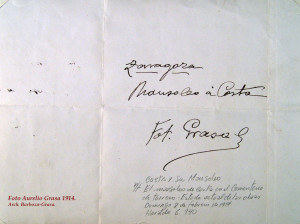 Zaragoza
Mausoleo à Costa
Fot. Grasa
Costa y Su Mausoleo
El mausoleo de Costa en el Cementerio
de Torrero. Estado actual de las obras
Domingo 8 de febrero de 1914
Heraldo
Foto Aurelio Grasa 1914.
Arch. Barboza-Grasa.